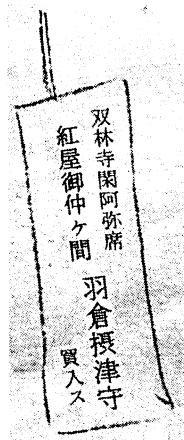 双林寺閑阿弥席
紅屋御仲ケ間 羽倉摂津守
買入ス